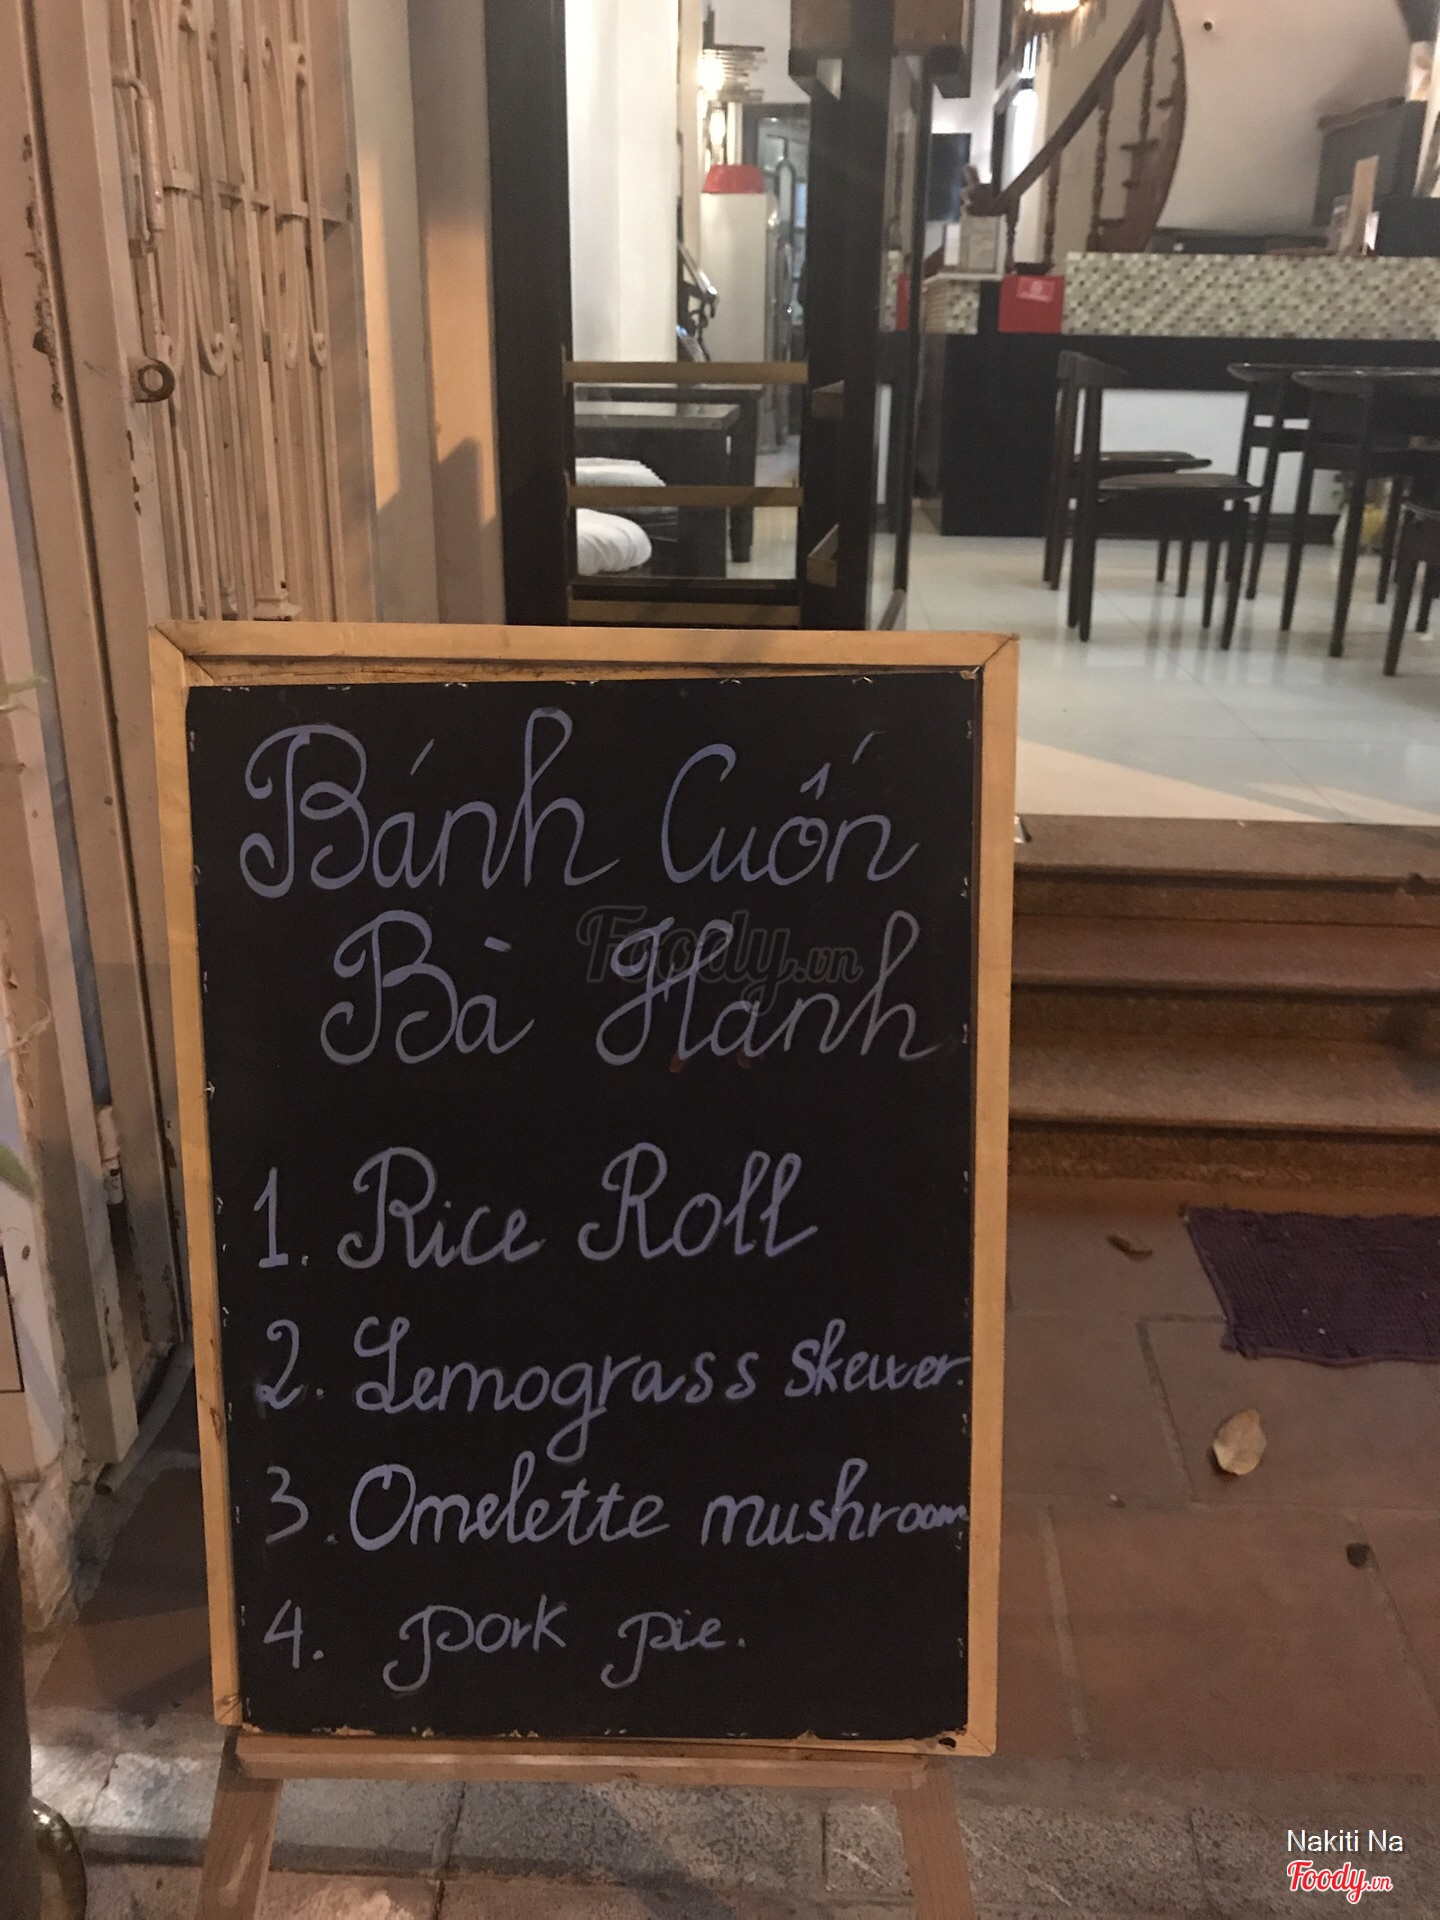 Bánh Cuốn
Bà Hanh
1. Rice Roll
2. Lemograss skewer.
3. Omelette mushroom
4. pork pie.
Foody.vn
Nakiti Na
Foody.vn